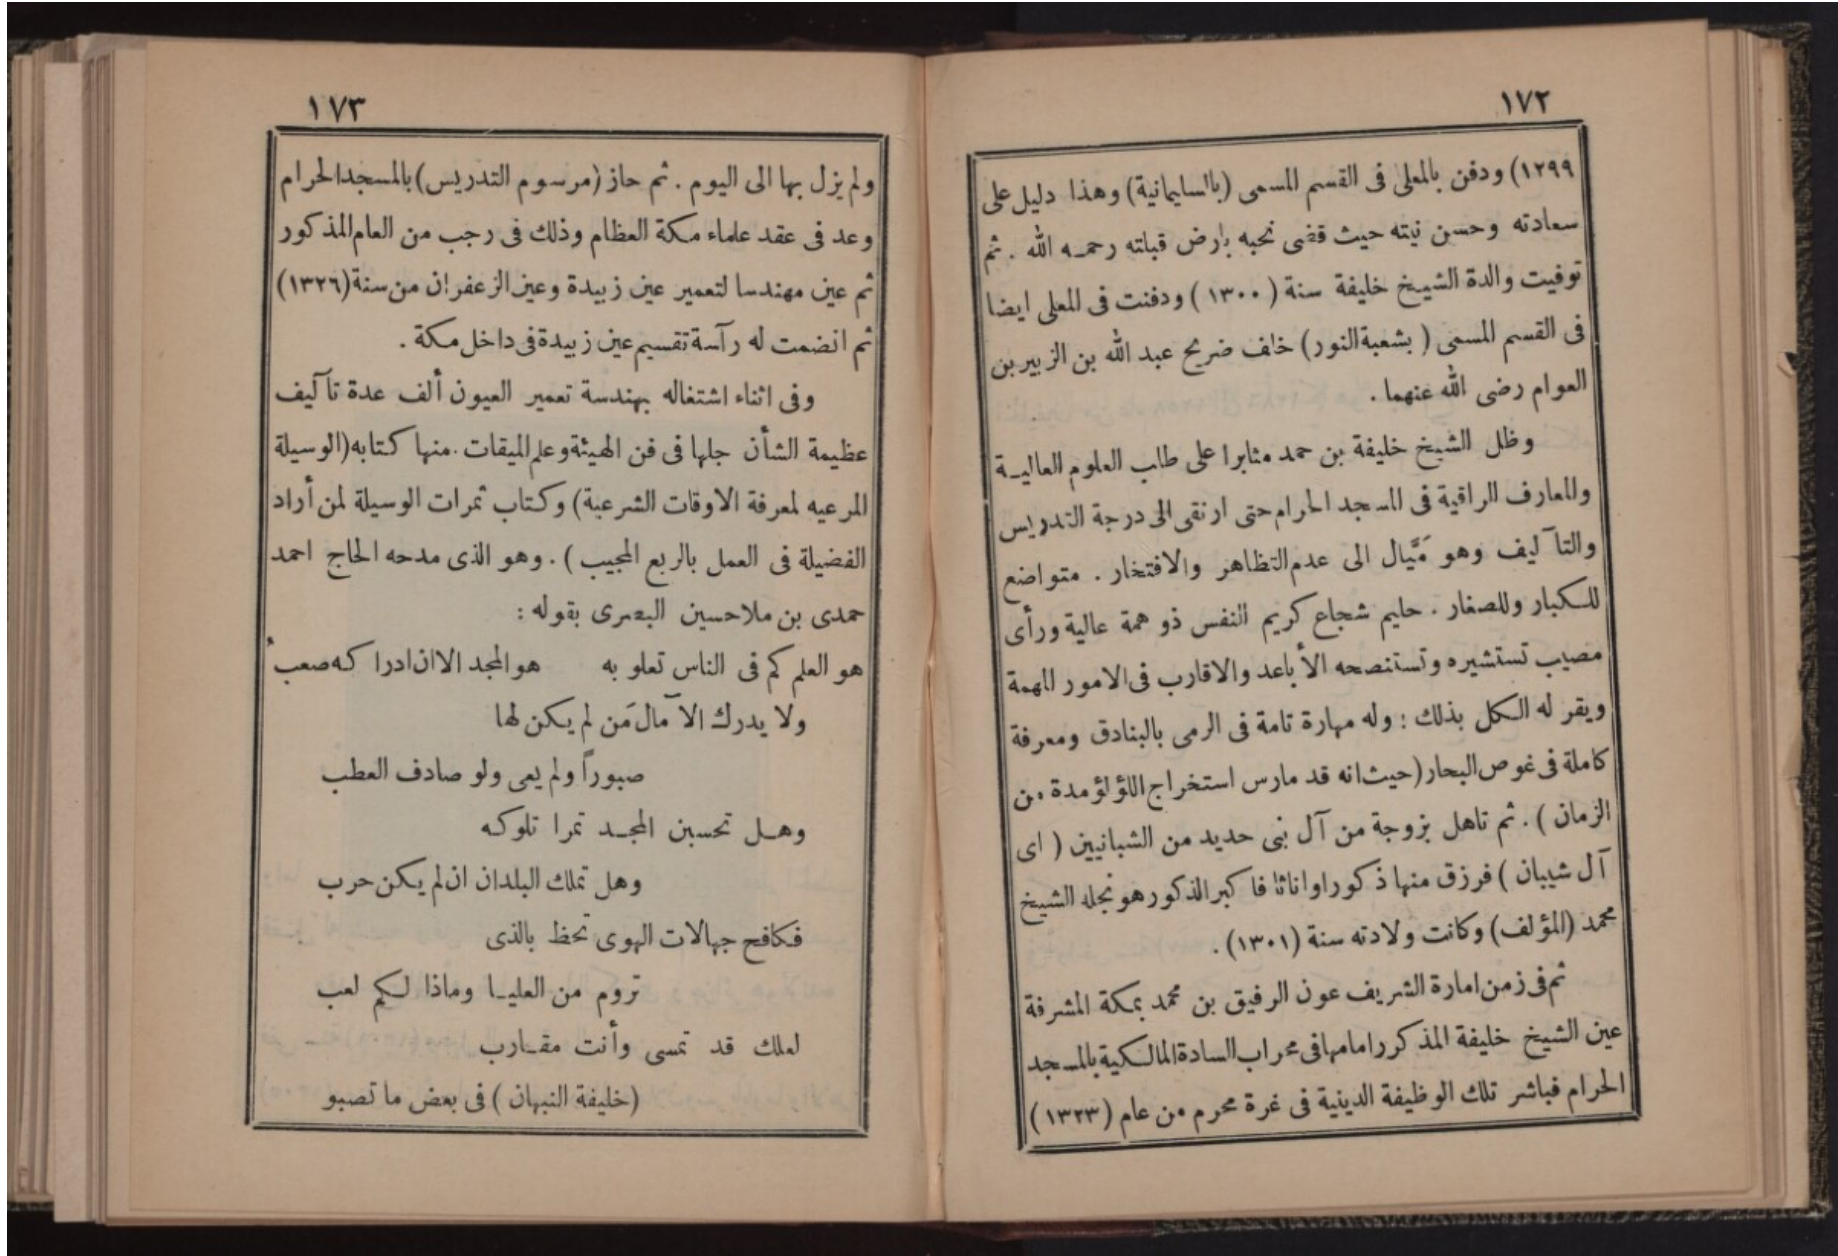 ١٧٢
١٢٩٩) ودفن بالمعلى فى القسم المسمى (بالسايمانية) وهذا دليل على
سعادته وحسن نيته حيث قضى نحبه بارض قبلته رحمه الله . ثم
توفيت والدة الشيخ خليفة سنة (١٣٠٠) ودفنت فى المعلى ايضا
فى القسم المسمى (بشعبة النور) خلف ضريح عبد الله بن الزبير بن
العوام رضى الله عنهما .
وظل الشيخ خليفة بن حمد مثابرا على طلب العلوم العالية
والمعارف الراقية فى المسجد الحرام حتى ارتقى الى درجة التدريس
والتآليف وهو مَيَّال الى عدم التظاهر والافتخار . متواضع
للكبار وللصغار . حليم شجاع كريم النفس ذو همة عالية ورأى
مصيب تستشيره وتستنصحه الأباعد والاقارب فى الامور المهمة
ويقر له الكل بذلك : وله مهارة تامة فى الرمى بالبنادق ومعرفة
كاملة فى غوص البحار (حيث انه قد مارس استخراج اللؤلؤ مدة من
الزمان ) . ثم تاهل بزوجة من آل نبى حديد من الشبانيين ( اى
آل شيبان ) فرزق منها ذكورا واناثا فاكبر الذكور هو نجله الشيخ
محمد (المؤلف) وكانت ولادته سنة (١٣٠١) .
ثم فى زمن امارة الشريف عون الرفيق بن محمد بمكة المشرفة
عين الشيخ خليفة المذكور امامها فى محراب السادة المالكية بالمسجد
الحرام فباشر تلك الوظيفة الدينية فى غرة محرم من عام (١٣٢٣)
١٧٣
ولم يزل بها الى اليوم . ثم حاز (مرسوم التدريس) بالمسجد الحرام
وعد فى عقد علماء مكة العظام وذلك فى رجب من العام المذكور
ثم عين مهندسا لتعمير عين زبيدة وعين الزعفران من سنة (١٣٢٦)
ثم انضمت له رآسة تقسيم عين زبيدة فى داخل مكة .
وفى اثناء اشتغاله بهندسة تعمير العيون ألف عدة تآليف
عظيمة الشأن جلها فى فن الهيئة وعلم الميقات . منها كتابه (الوسيلة
المرعيه لمعرفة الاوقات الشرعية) وكتاب ثمرات الوسيلة لمن أراد
الفضيلة فى العمل بالربع المجيب ) . وهو الذى مدحه الحاج احمد
حمدى بن ملاحسين البصرى بقوله :
هو العلم كم فى الناس تعلو به هو المجد الا ان ادراكه صعبُ
ولا يدرك الآمال مَن لم يكن لها
صبوراً ولم يعى ولو صادف العطب
وهل تحسبن المجد تمرا تلوكه
وهل تملك البلدان ان لم يكن حرب
فكافح جهالات الهوى تحظ بالذى
تروم من العليا وماذا لكم لعب
لعلك قد تمسى وأنت مقارب
(خليفة النبهان ) فى بعض ما تصبو